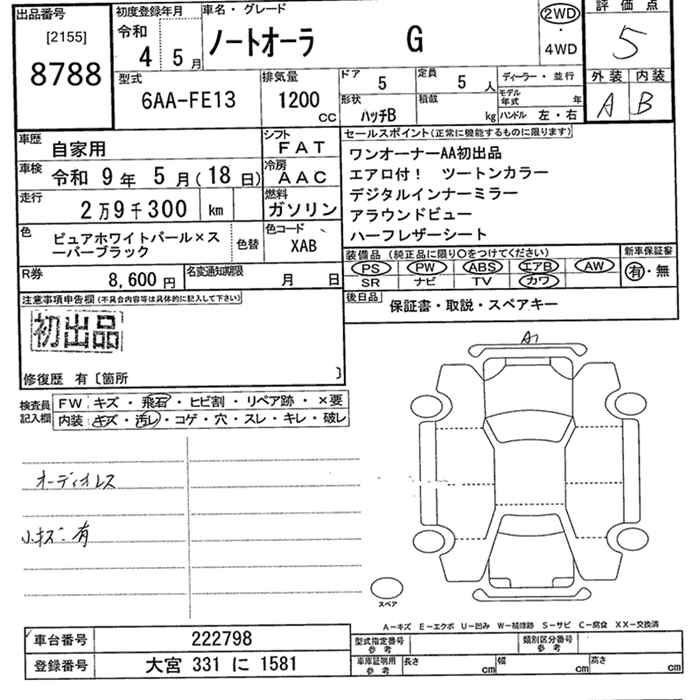 出品番号
[2155]
8788
初度登録年月
令和
4 5月
車名・グレード
ノートオーラ G
2WD
・
4WD
評価点
5
外装 内装
A B
型式
6AA-FE13
排気量
1200 CC
ドア
5
定員
5 人
形状
ハッチB
積載
kg
ディーラー・並行
モデル年式 年
ハンドル 左・右
車歴
自家用
シフト
FAT
車検
令和 9年 5月(18日)
冷房
AAC
走行
2万9千300 km
燃料
ガソリン
色
ピュアホワイトパール×ス
ーパーブラック
色替
色コード
XAB
R券
8,600円
名変通知期限
月 日
セールスポイント(正常に機能するものに限ります)
ワンオーナーAA初出品
エアロ付! ツートンカラー
デジタルインナーミラー
アラウンドビュー
ハーフレザーシート
装備品(純正品に限り〇をつけてください)
PS PW ABS エアB AW
SR ナビ TV カワ
新車保証書
有・無
後日品
保証書・取説・スペアキー
注意事項申告欄(不具合内容等は具体的に記入して下さい)
初出品
修復歴 有〔箇所 〕
検査員
記入欄
FW キズ・飛石・ヒビ割・リペア跡・×要
内装 キズ・汚レ・コゲ・穴・スレ・キレ・破レ
オーディオレス
小キズ有
A1
スペア
A-キズ E-エクボ U-凹み W-補修跡 S-サビ C-腐食 XX-交換済
車台番号
222798
登録番号
大宮 331 に 1581
型式指定番号
参考
類別区分番号
参考
車庫証明用
参考
長さ cm
幅 cm
高さ cm